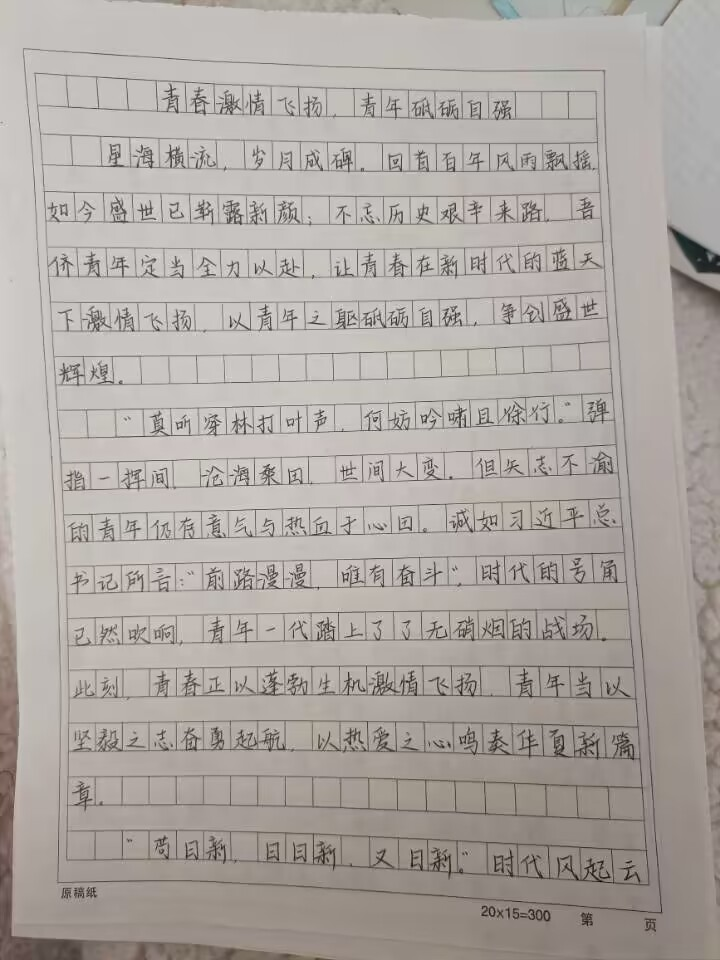 青春激情飞扬，青年砥砺自强
星海横流，岁月成碑。回首百年风雨飘摇，
如今盛世已崭露新颜；不忘历史艰辛来路，吾
侪青年定当全力以赴，让青春在新时代的蓝天
下激情飞扬，以青年之躯砥砺自强，争创盛世
辉煌。
“莫听穿林打叶声，何妨吟啸且徐行。”弹
指一挥间，沧海桑田，世间大变。但矢志不渝
的青年仍存意气与热血于心田。诚如习近平总
书记所言：“前路漫漫，唯有奋斗”，时代的号角
已然吹响，青年一代踏上了了无硝烟的战场。
此刻，青春正以蓬勃生机激情飞扬，青年当以
坚毅之志奋勇起航，以热爱之心鸣奏华夏新篇
章。
“苟日新，日日新，又日新。”时代风起云
原稿纸
20×15=300 第 页